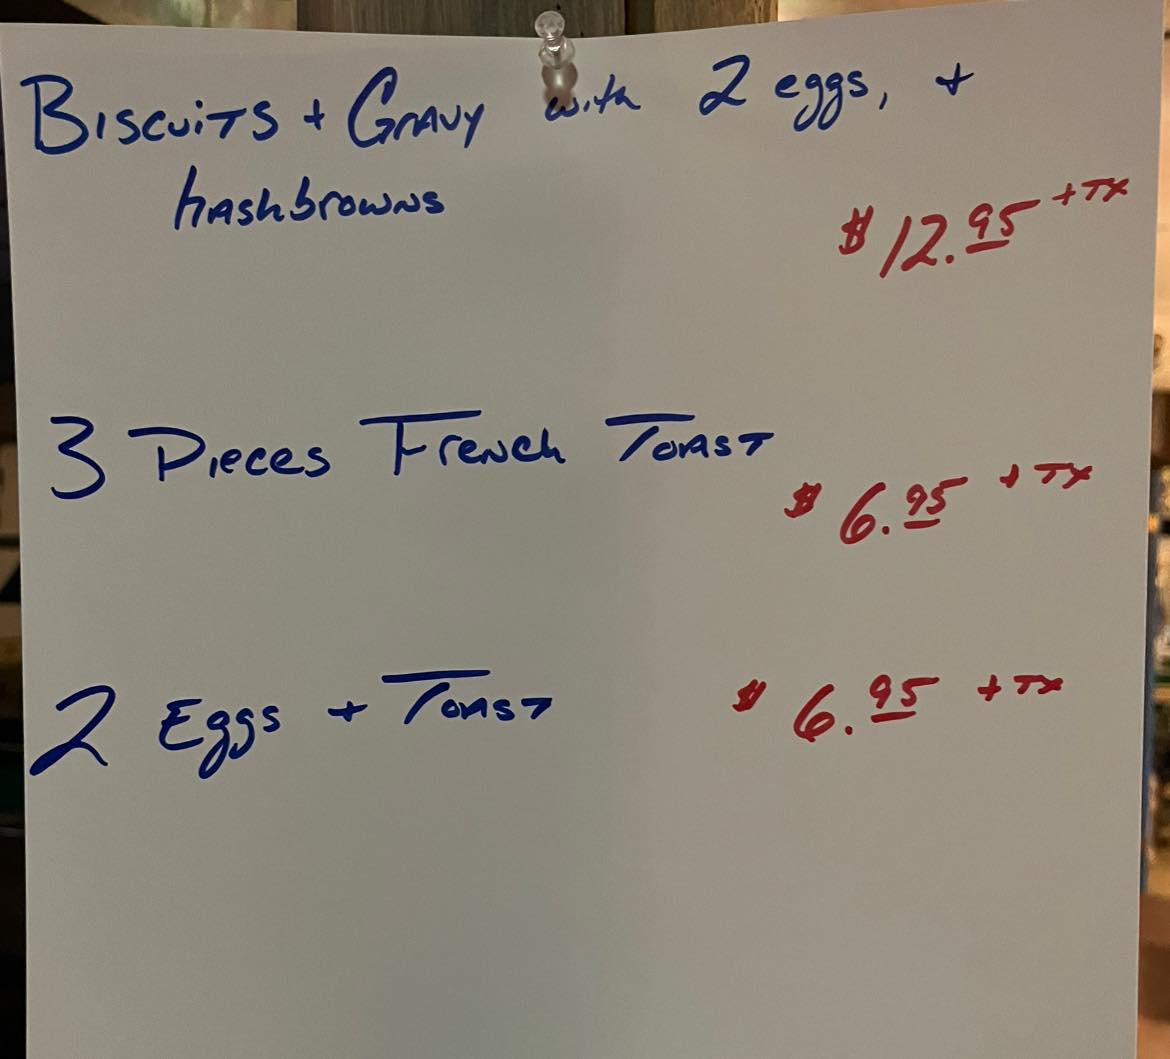 Biscuits + Gravy with 2 eggs, +
hashbrowns
$12.95 + TX
3 Pieces French Toast
$6.95 + TX
2 Eggs + Toast $6.95 + TX